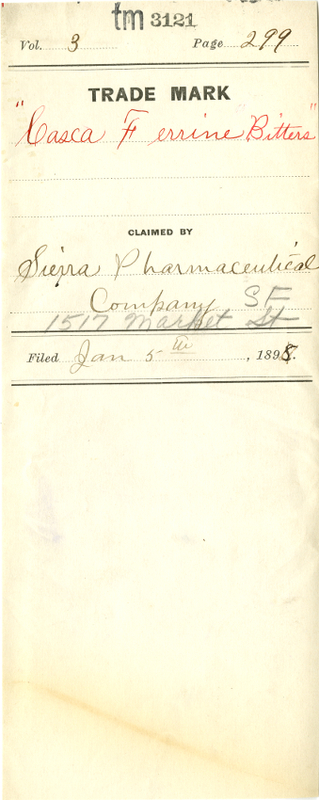 tm 3121
Vol. 3 Page 299
TRADE MARK
"Casca Ferrine Bitters"
CLAIMED BY
Sierra Pharmaceutical
Company SF
1517 Market St
Filed Jan 5th, 1898.